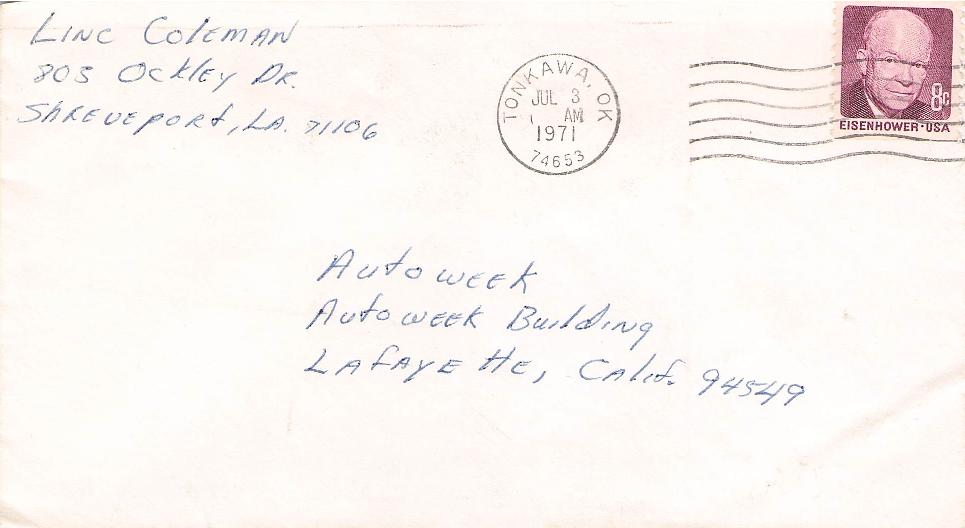 Linc Coleman
803 Ockley Dr.
Shreveport, LA. 71106
TONKAWA, OK
JUL 3
AM
1971
74653
8c
EISENHOWER·USA
Autoweek
Autoweek Building
Lafayette, Calif. 94549